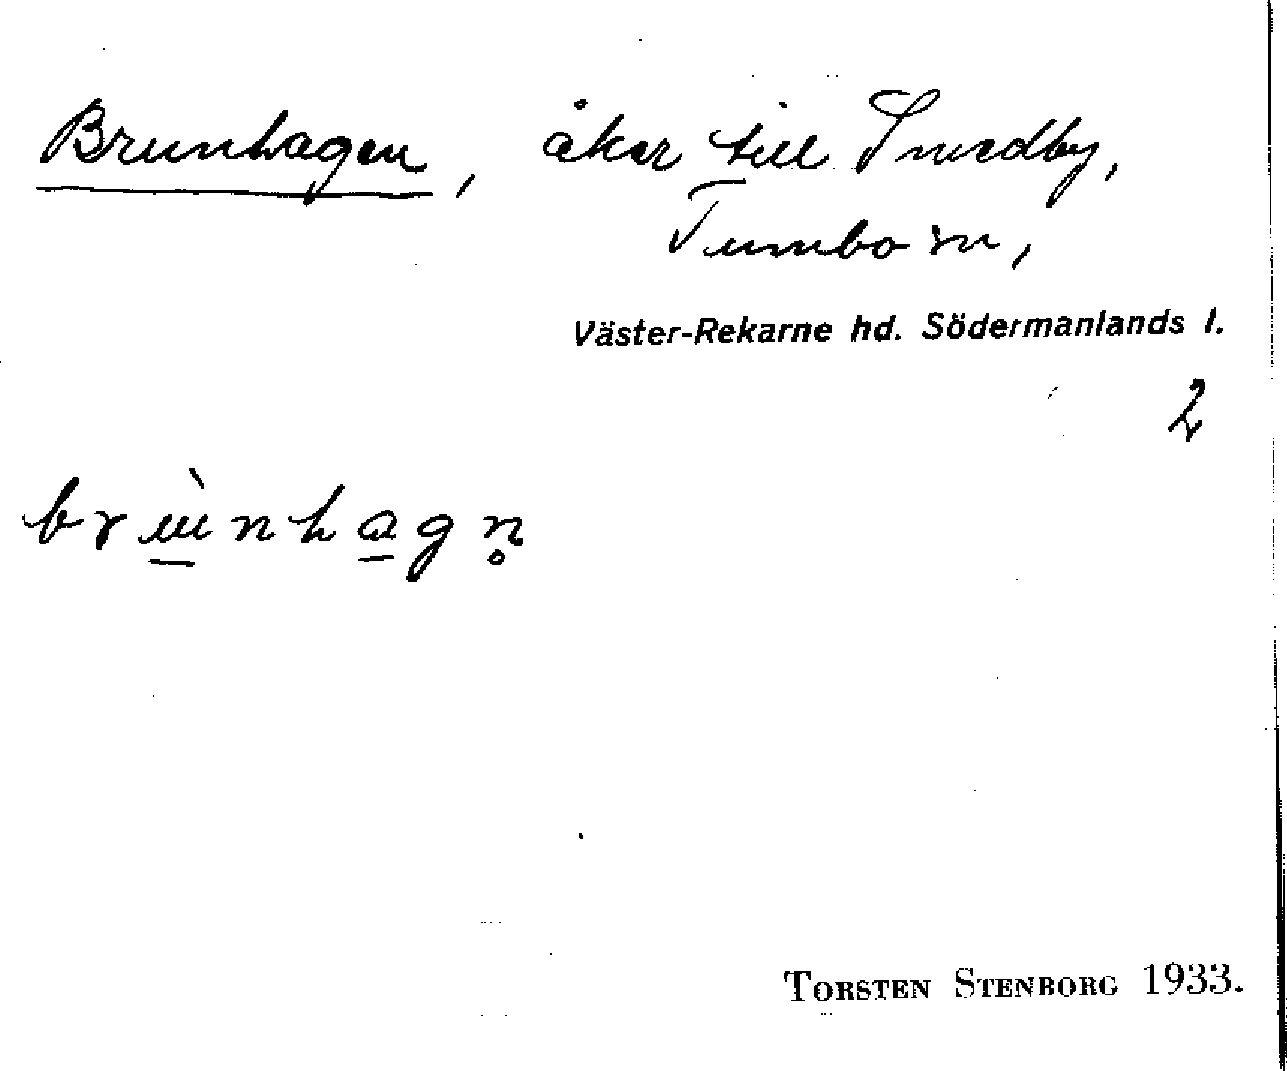 Brunhagen, åker till Smedby,
Tumbo sn,
Väster-Rekarne hd. Södermanlands l.
2
brùnhagn̥
TORSTEN STENBORG 1933.